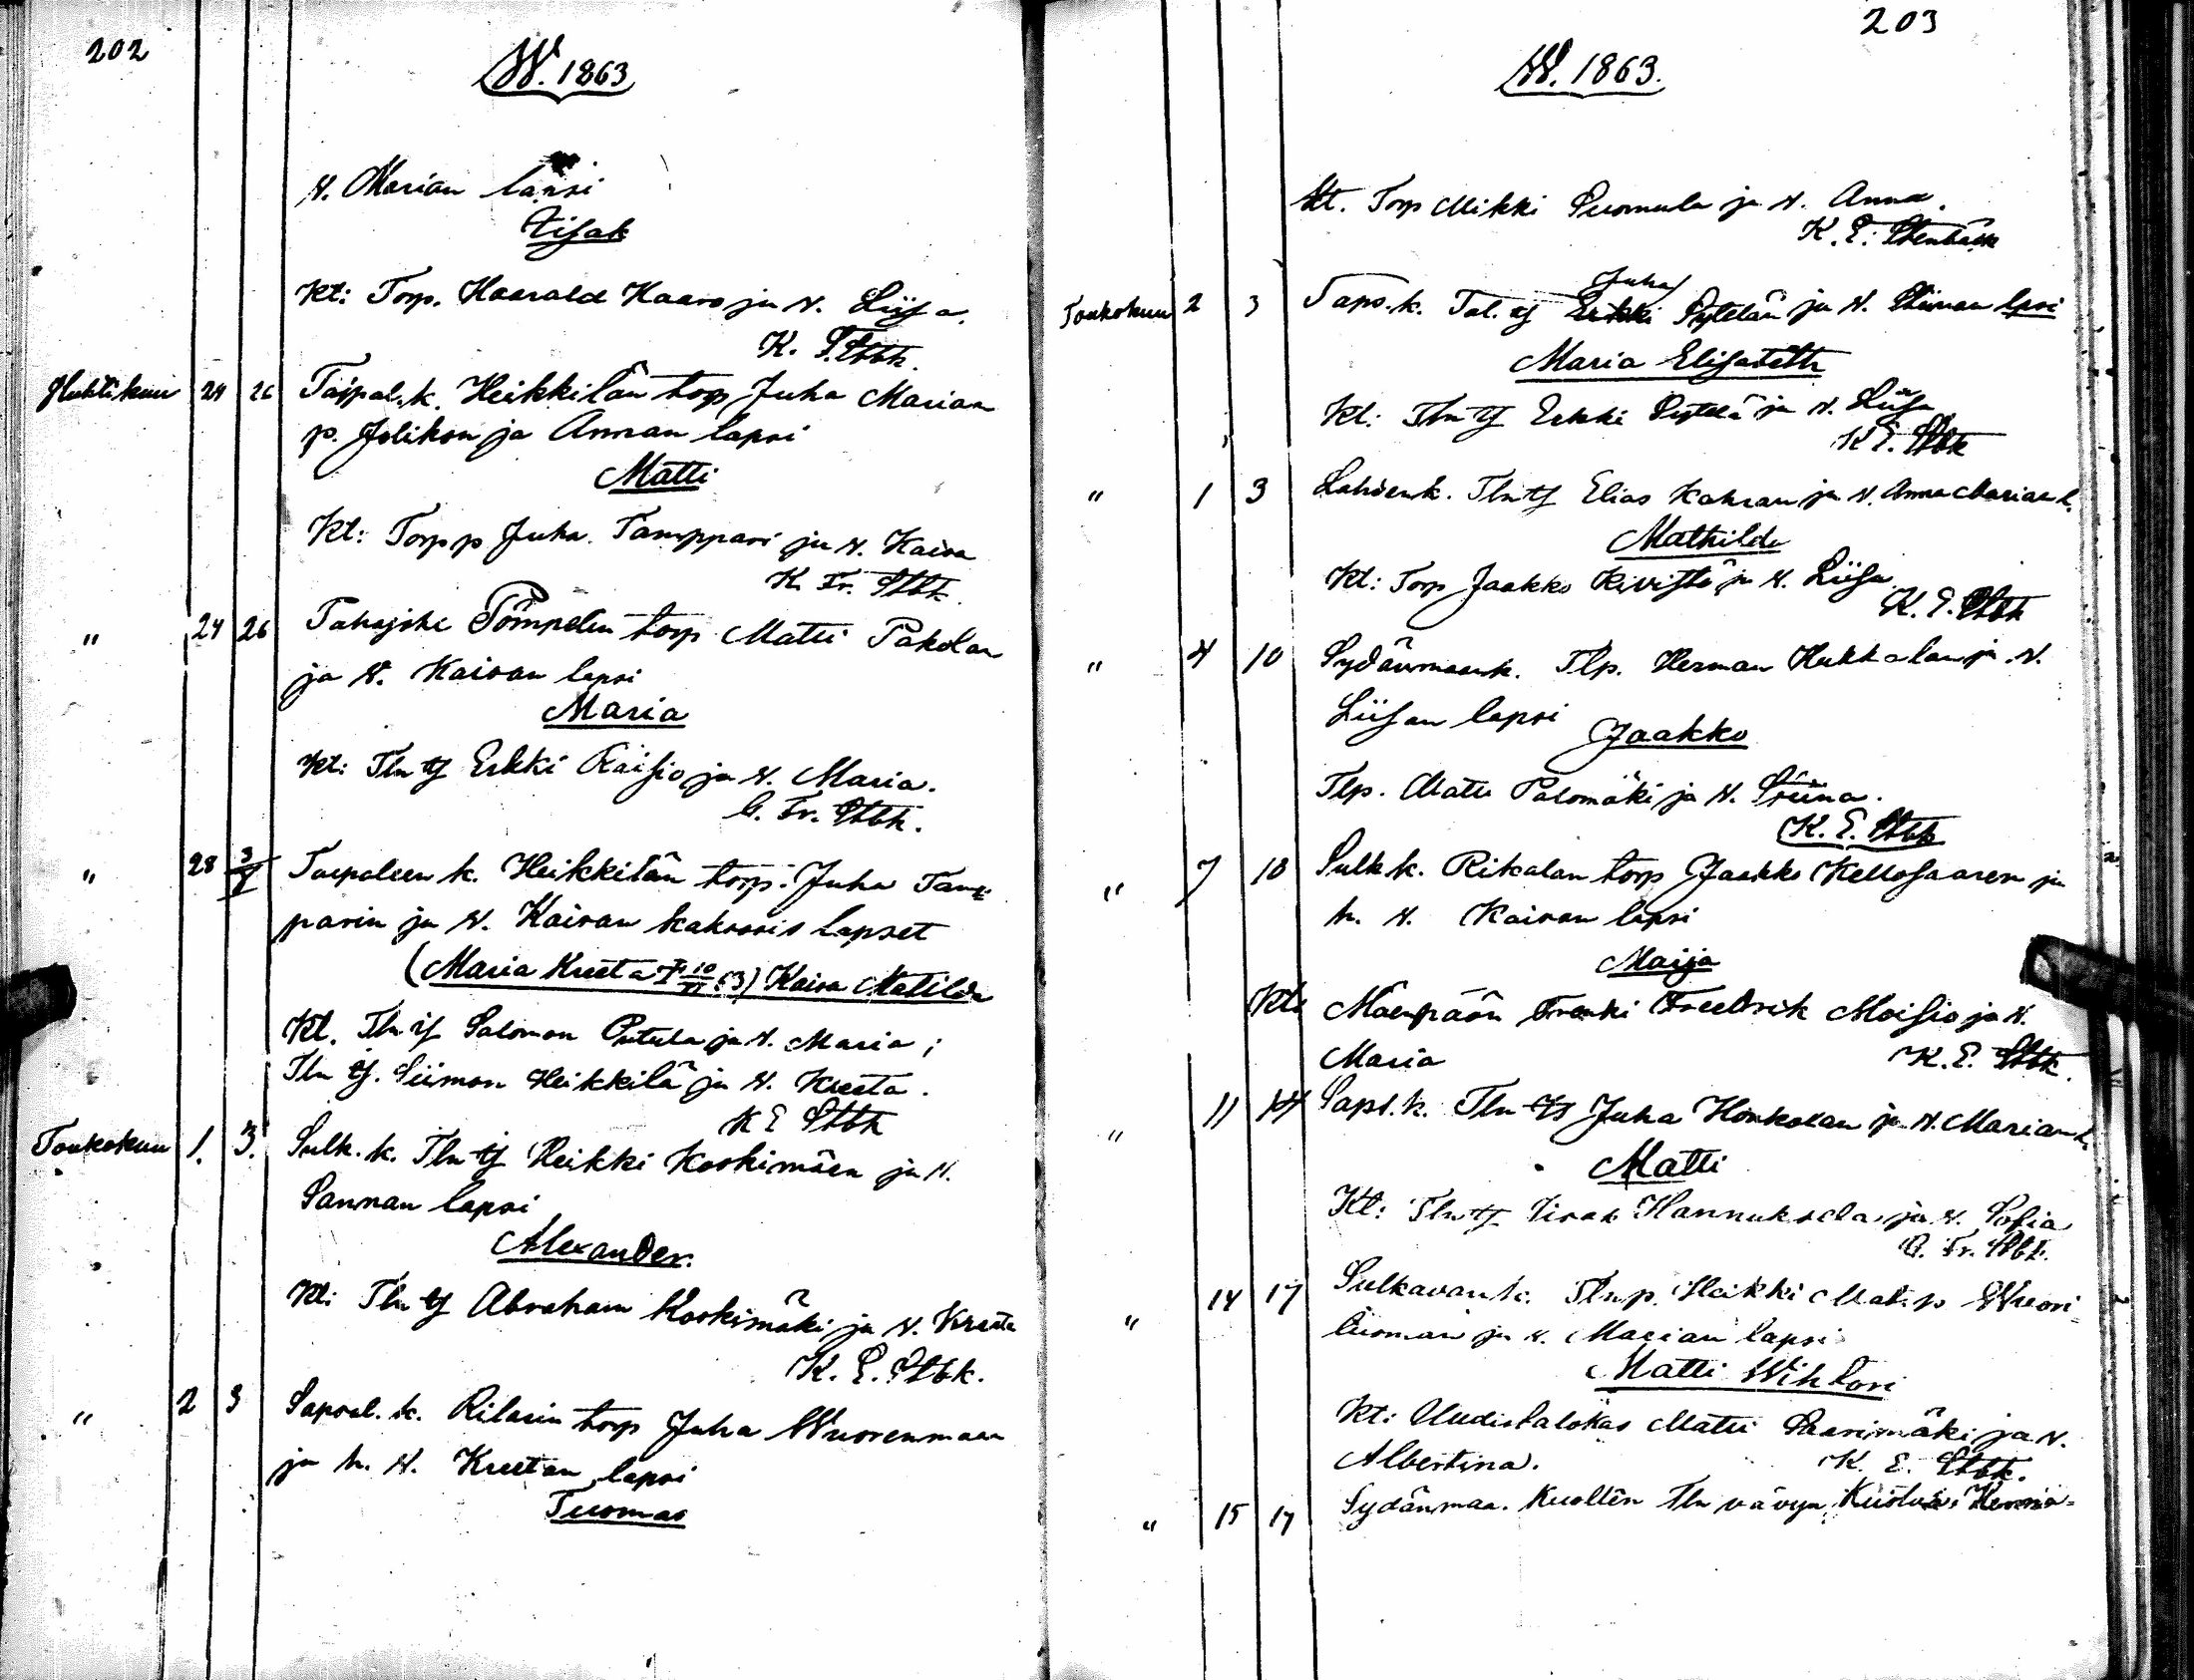 202
W. 1863
v. Marian lapsi
Iisak
Kt: Torp. Haarald Haaro ja v. Liisa.
K. E. Stbk.
Huhtikuu 24 26 Taipal. k. Heikkilän torp Juha Marian
p. Jylikon ja Annan lapsi
Matti
Kt: Torp p Juha Tamppari ja v. Kaisa
K. Fr. Stbk.
" 24 26 Tahajoke Pömpelin torp Matti Pakolan
ja v. Kaisan lapsi
Maria
Kt: Tln tj Erkki Raisio ja v. Maria.
C. Fr. Stbk.
" 28 3/V Taipaleen k. Heikkilän torp. Juha Tam=
parin ja v. Kaisan kaksois lapset
(Maria Kreeta † 10/VI 63) Kaisa Matilda
Kt. Tln tj Salomon Putula ja v. Maria;
Tln tj. Siimon Heikkilä ja v. Kreeta.
K E Stbk
Toukokuu 1. 3. Sulk. k. Tln tj Heikki Koskimäen ja v.
Sannan lapsi
Alexander.
Kt: Tln tj Abraham Koskimäki ja v. Kreeta
K. E. Stbk.
" 2 3 Sapsal. k. Rilarin torp Juha Wuorenmaan
ja h. v. Kreetan lapsi
Tuomas
203
W. 1863.
Kt. Torp Mikki Luomula ja v. Anna.
K. E. Stenbäck
Juha
Toukokuu 2 3 Saps. k. Tal. tj Erkki Pytelän ja v. Stiinan lpsi
Maria Elisabeth
Kt: Tln tj Erkki Pytelä ja v. Liisa
K E. Stbk
" 1 3 Lahden k. Tln tj Elias Kahran ja v. Anna Marian l.
Mathilda
Kt: Torp Jaakko Kivistö ja v. Liisa
K. E. Stbk
" 4 10 Sydänmaan k. Tlp. Herman Hukkalan ja v.
Liisan lapsi
Jaakko
Tlp. Matti Palomäki ja v. Stiina.
K. E. Stbk
" 7 10 Sulk k. Rikalan torp Jaakko Kellosaaren ja
h. v. Kaisan lapsi
Maija
Kt: Mäenpään Frenki Freedrik Moisio ja v.
Maria
K. E. Stbk.
" 11 14 Saps. k. Tln tj Juha Honkolan ja v. Marian l.
Matti
Kt: Tln tj Iisak Hannuksela ja v. Sofia
C. Fr. Stbk.
" 14 17 Sulkavan k. Tln p. Heikki Mat. p Wuori=
luoman ja v. Marian lapsi
Matti Wihtori
Kt: Uudistalokas Matti Saarimäki ja v.
Albertina.
K. E. Stbk.
" 15 17 Sydänmaa. Tln vävyn